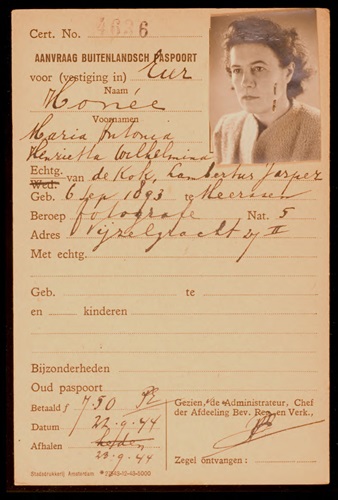 Cert. No. 4636
AANVRAAG BUITENLANDSCH PASPOORT
voor (vestiging in) Eur
Naam
Honée
Voornamen
Maria Antonia
Henrietta Wilhelmina
Echtg. van de Kok, Lambertus Jasper
Wed.
Geb. 6 Sep 1893 te Meerssen
Beroep fotografe Nat. 5
Adres Vijzelgracht II
Met echtg.
Geb. te
en kinderen
Bijzonderheden
Oud paspoort
Betaald f 7.50
Datum 22-9-44
Afhalen heden
23-9-44
Gezien, de Administrateur, Chef
der Afdeeling Bev. Reg. en Verk.,
Zegel ontvangen :
Stadsdrukkerij Amsterdam